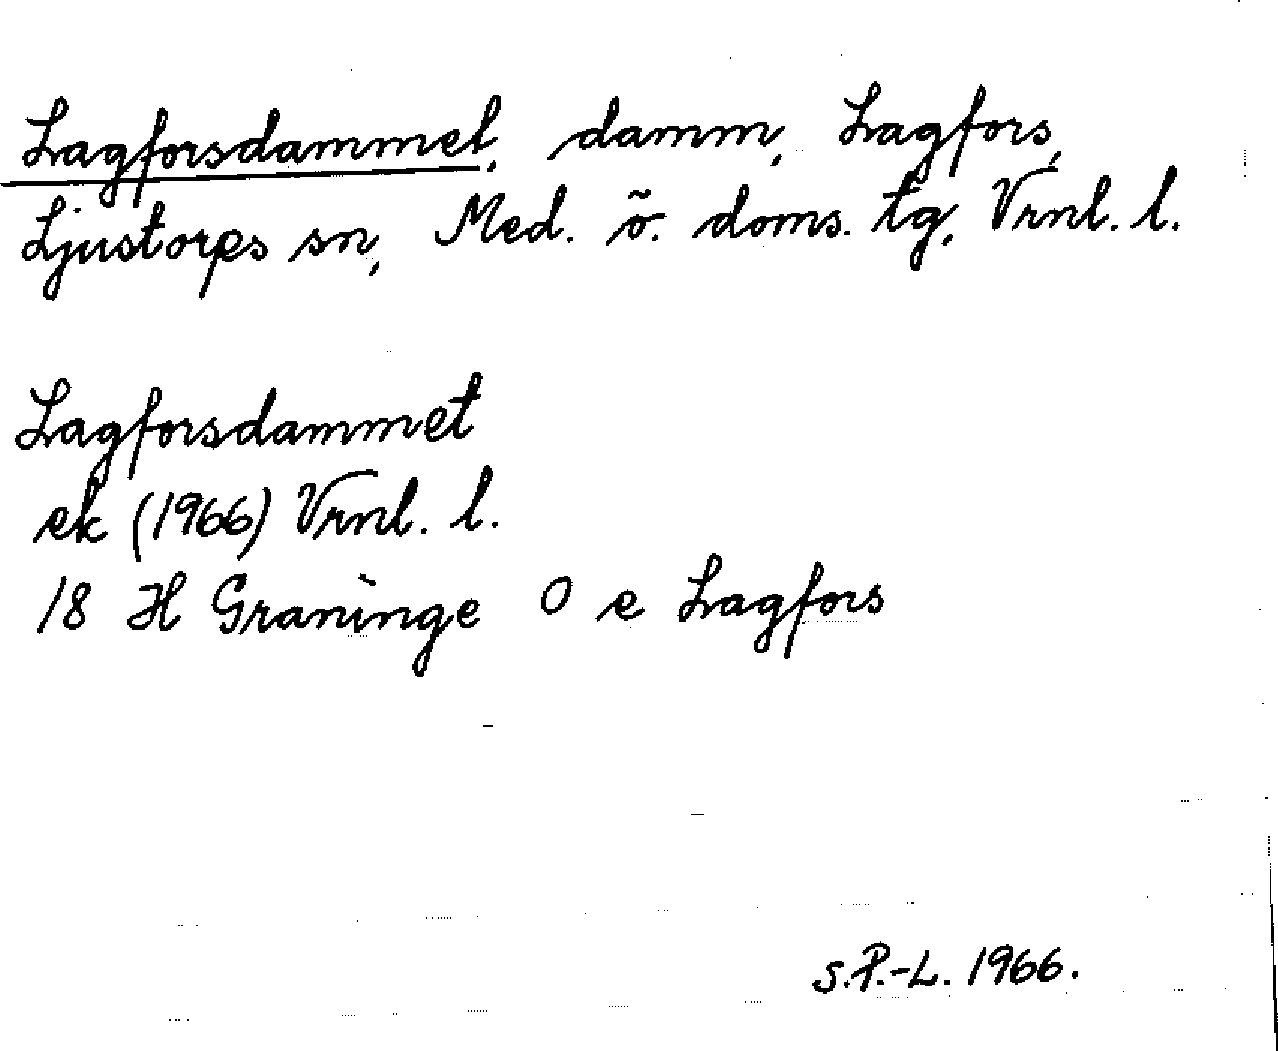 Lagforsdammet, damm, Lagfors,
Ljustorps sn, Med. ö. doms. tg, Vrnl. l.
Lagforsdammet
ek (1966) Vrnl. l.
18 H Graninge O e Lagfors
S.P.-L. 1966.